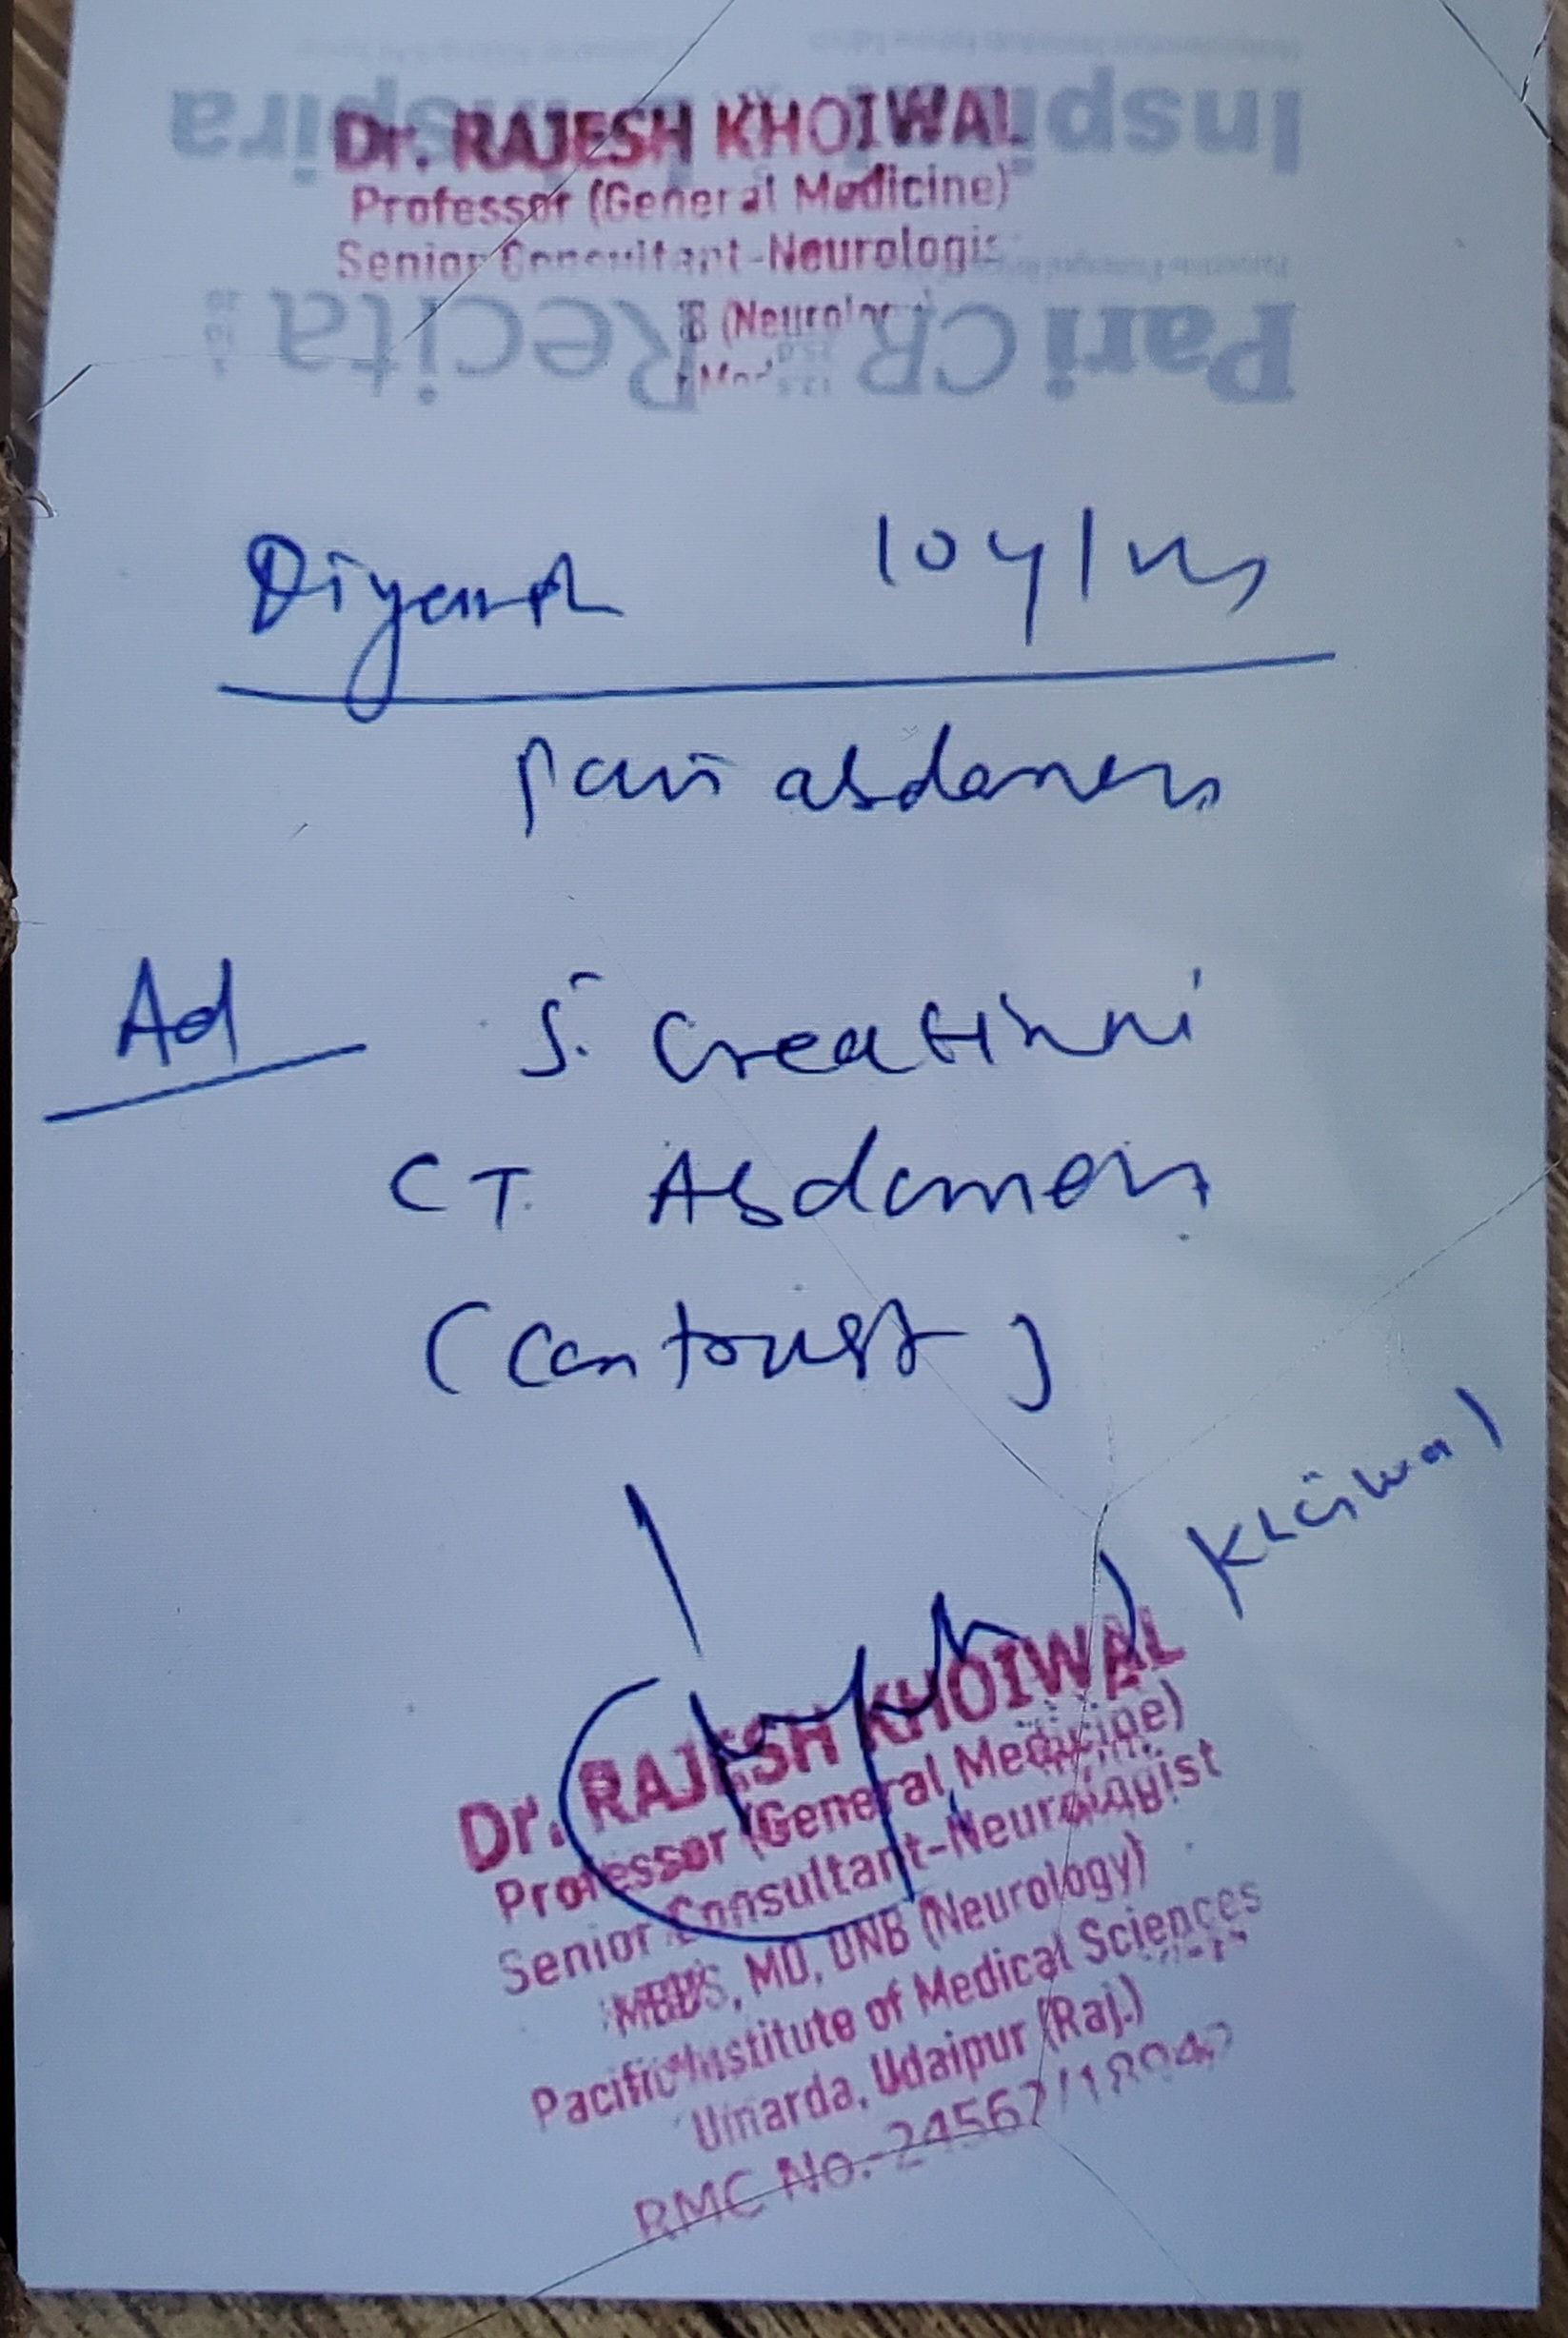 Dr. RAJESH KHOIWAL
Professor (General Medicine)
Senior Consultant-Neurologis
B (Neurolo
Diyansh 10y/M
Pain abdomen
Ad S. Creatinine
CT Abdomen
(Contrast)
Khoiwal
Dr. RAJESH KHOIWAL
Professor (General Medicine)
Senior Consultant-Neurologist
MBBS, MD, DNB (Neurology)
Pacific Institute of Medical Sciences
Umarda, Udaipur (Raj.)
RMC No.-24567/
Inspira Inspira
Pari CR Recita